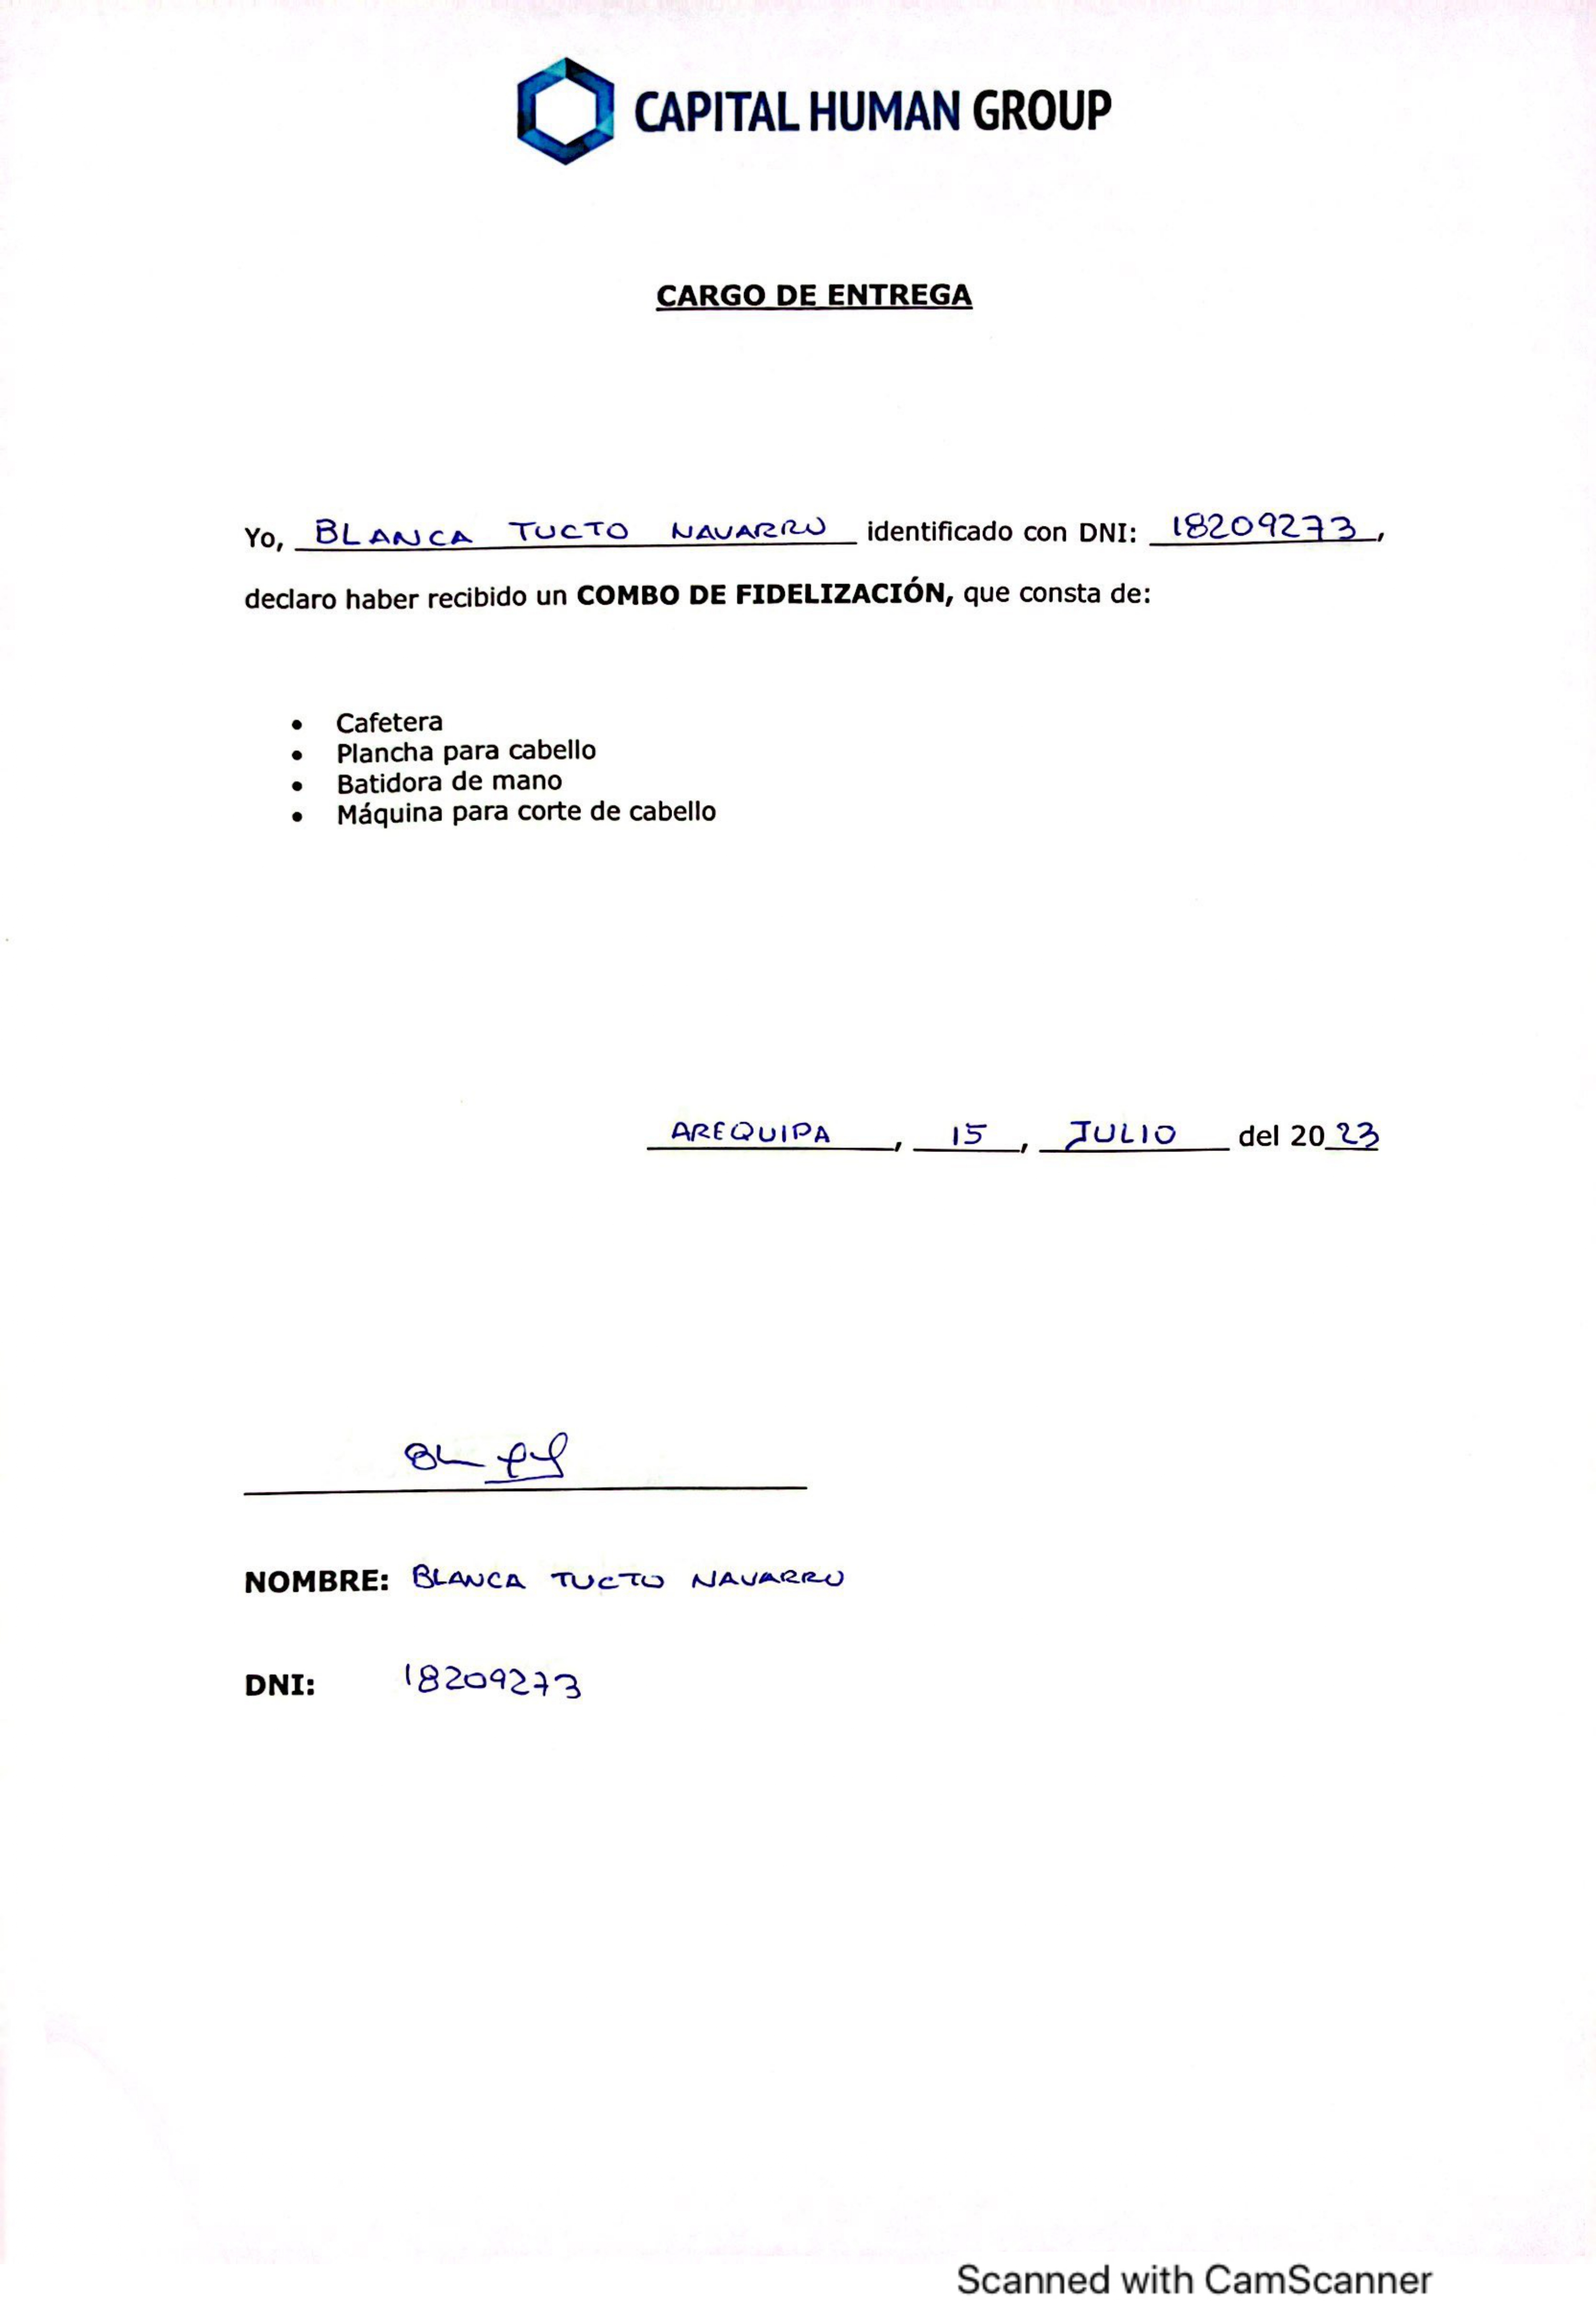 CAPITAL HUMAN GROUP
CARGO DE ENTREGA
Yo, BLANCA TUCTO NAVARRO identificado con DNI: 18209273,
declaro haber recibido un COMBO DE FIDELIZACIÓN, que consta de:
• Cafetera
• Plancha para cabello
• Batidora de mano
• Máquina para corte de cabello
AREQUIPA, 15, JULIO del 2023
NOMBRE: BLANCA TUCTO NAVARRO
DNI: 18209273
Scanned with CamScanner